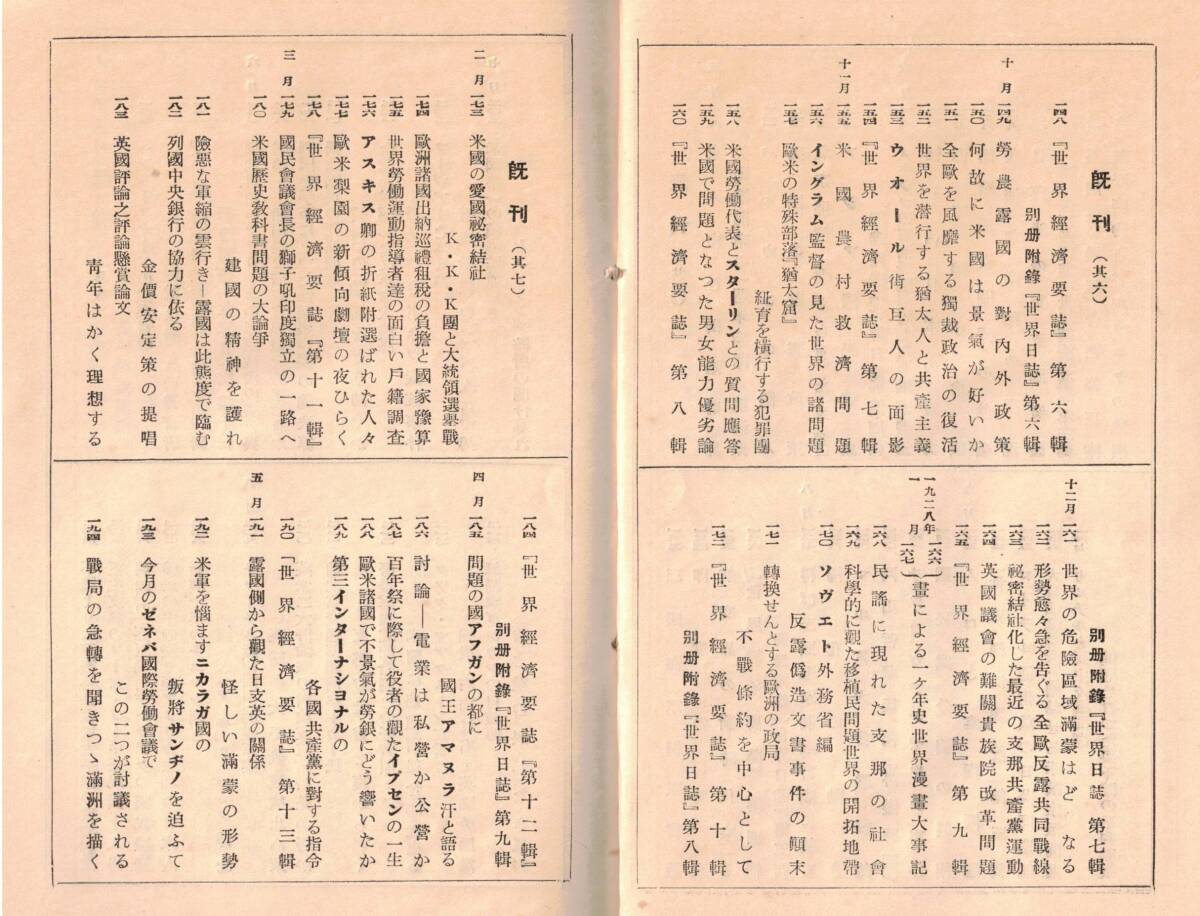 既刊（其六）
一四八　『世界經濟要誌』第六輯
別册附錄『世界日誌』第六輯
十月　一四九　勞農露國の對內外政策
一五〇　何故に米國は景氣が好いか
一五一　全歐を風靡する獨裁政治の復活
一五二　世界を潜行する猶太人と共產主義
一五三　ウオール街巨人の面影
一五四　『世界經濟要誌』第七輯
十一月　一五五　米國農村救濟問題
一五六　イングラム監督の見た世界の諸問題
一五七　歐米の特殊部落『猶太窟』
紐育を橫行する犯罪團
一五八　米國勞働代表とスターリンとの質問應答
一五九　米國で問題となつた男女能力優劣論
一六〇　『世界經濟要誌』第八輯
別册附錄『世界日誌』第七輯
十二月　一六一　世界の危險區域滿蒙はど　なる
一六二　形勢愈々急を告ぐる全歐反露共同戰線
一六三　祕密結社化した最近の支那共產黨運動
一六四　英國議會の難關貴族院改革問題
一六五　『世界經濟要誌』第九輯
一九二八年
一月　一六六　一六七　畫による一ケ年史世界漫畫大事記
一六八　民謠に現れた支那の社會
一六九　科學的に觀た移植民問題世界の開拓地帶
一七〇　ソヴエト外務省編
反露僞造文書事件の顚末
一七一　轉換せんとする歐洲の政局
不戰條約を中心として
一七二　『世界經濟要誌』第十輯
別册附錄『世界日誌』第八輯
既刊（其七）
二月　一七三　米國の愛國祕密結社
K・K・K團と大統領選擧戰
一七四　歐洲諸國出納巡禮租稅の負擔と國家豫算
一七五　世界勞働運動指導者達の面白い戶籍調査
一七六　アスキス卿の折紙附選ばれた人々
一七七　歐米梨園の新傾向劇壇の夜ひらく
一七八　『世界經濟要誌』『第十一輯』
三月　一七九　國民會議會長の獅子吼印度獨立の一路へ
一八〇　米國歷史敎科書問題の大論爭
建國の精神を護れ
一八一　險惡な軍縮の雲行き―露國は此態度で臨む
一八二　列國中央銀行の協力に依る
金價安定策の提唱
一八三　英國評論之評論懸賞論文
靑年はかく理想する
一八四　『世界經濟要誌』『第十二輯』
別册附錄『世界日誌』第九輯
四月　一八五　問題の國アフガンの都に
國王アマヌラ汗と語る
一八六　討論―電業は私營か公營か
一八七　百年祭に際して役者の觀たイプセンの一生
一八八　歐米諸國で不景氣が勞銀にどう響いたか
一八九　第三インターナシヨナルの
各國共產黨に對する指令
一九〇　『世界經濟要誌』第十三輯
五月　一九一　露國側から觀た日支英の關係
怪しい滿蒙の形勢
一九二　米軍を惱ますニカラガ國の
叛將サンヂノを追ふて
一九三　今月のゼネバ國際勞働會議で
この二つが討議される
一九四　戰局の急轉を聞きつゝ滿洲を描く